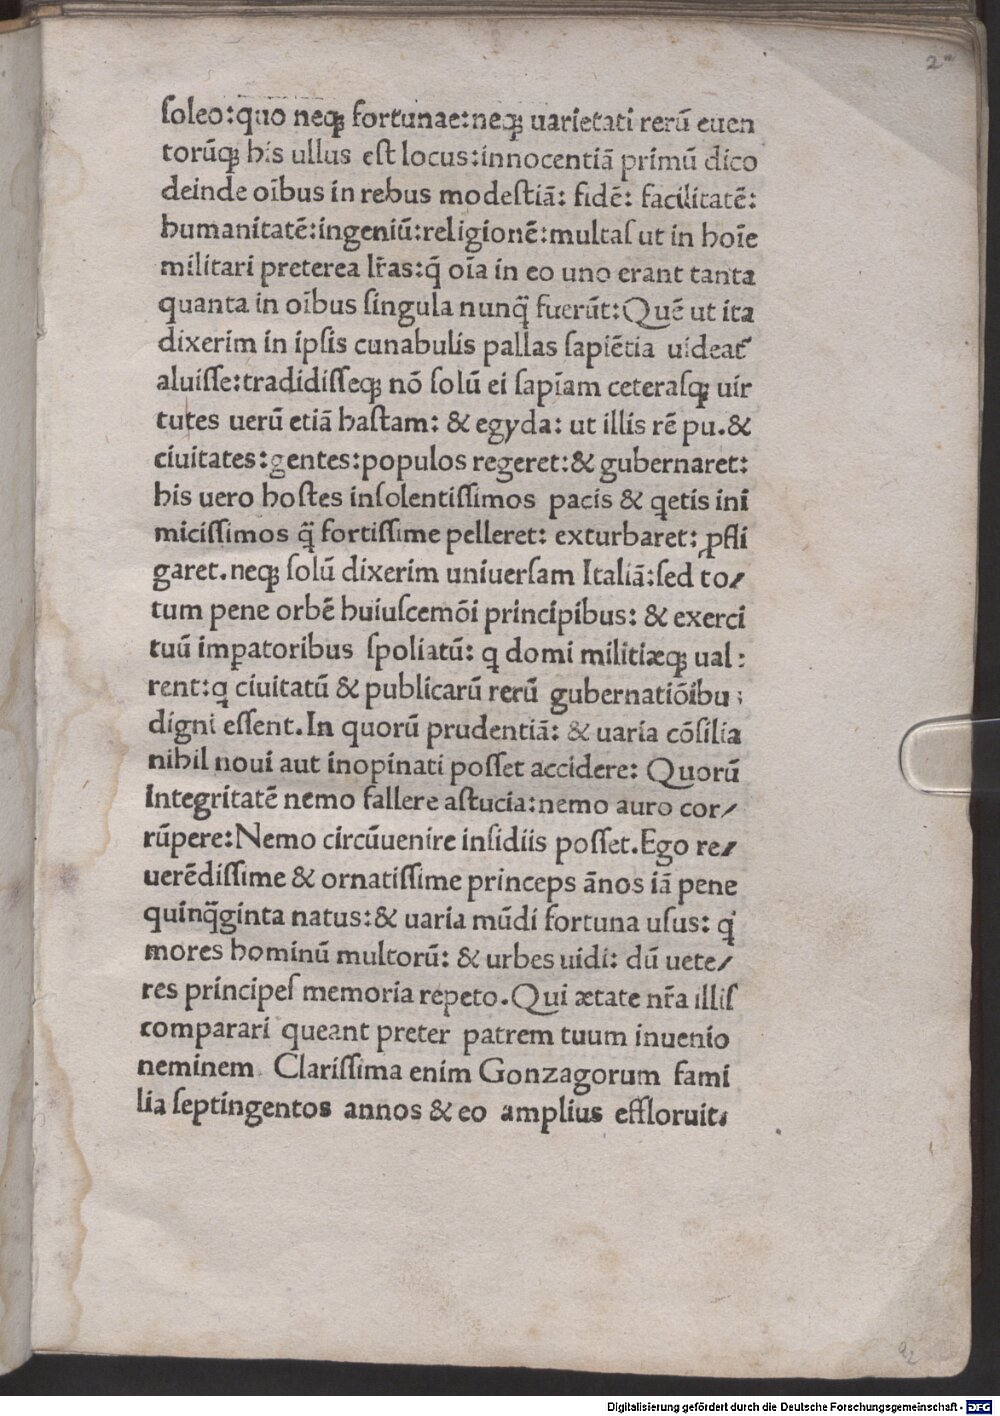 2
ſoleo:quo neqꝫ fortunae:neqꝫ uarietati rerū euen
torūqꝫ his ullus eſt locus:innocentiā primū dico
deinde oībus in rebus modeſtiā: fidē: facilitatē:
humanitatē:ingeniū:religionē:multaſ ut in hoīe
militari preterea lr̄as:q̄ oīa in eo uno erant tanta
quanta in oībus ſingula nunq̄ fuerūt:Quē ut ita
dixerim in ipſis cunabulis pallas ſapiētia uideat᷑
aluiſſe:tradidiſſeqꝫ nō ſolū ei ſapīam ceteraſqꝫ uir
tutes uerū etiā haſtam: & egyda: ut illis rē pu.&
ciuitates:gentes:populos regeret:& gubernaret:
his uero hoſtes inſolentiſſimos pacis & qetis ini
miciſſimos q̄ fortiſſime pelleret: exturbaret: ꝓfli
garet.neqꝫ ſolū dixerim uniuerſam Italiā:ſed to/
tum pene orbē huiuſcemōi principibus: & exerci
tuū imꝑatoribus ſpoliatū: q domi militiæqꝫ ual:
rent:q ciuitatū & publicarū rerū gubernatiōibu;
digni eſſent.In quorū prudentiā: & uaria cōſilia
nihil noui aut inopinati poſſet accidere: Quorū
Integritatē nemo fallere aſtucia:nemo auro cor/
rūpere:Nemo circūuenire inſidiis poſſet.Ego re/
uerēdiſſime & ornatiſſime princeps ānos iā pene
quinq̄ginta natus:& uaria mūdi fortuna uſus: q
mores hominū multorū: & urbes uidi: dū uete/
res principeſ memoria repeto.Qui ætate nr̄a illiſ
comparari queant preter patrem tuum inuenio
neminem. Clariſſima enim Gonzagorum fami
lia ſeptingentos annos & eo amplius effloruit.
Digitalisierung gefördert durch die Deutsche Forschungsgemeinschaft - DFG